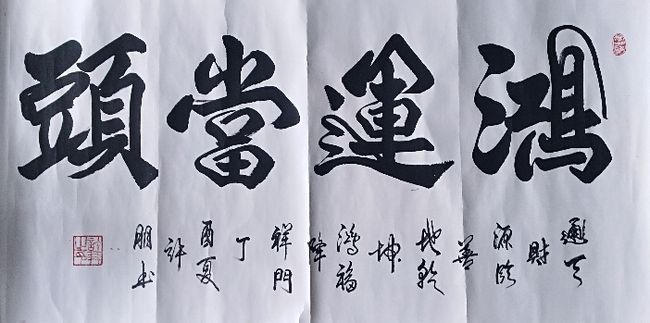 鴻運當頭
通天
財
源臨
善
地乾
坤
鴻福
降
祥門
丁
酉夏
許
朋书